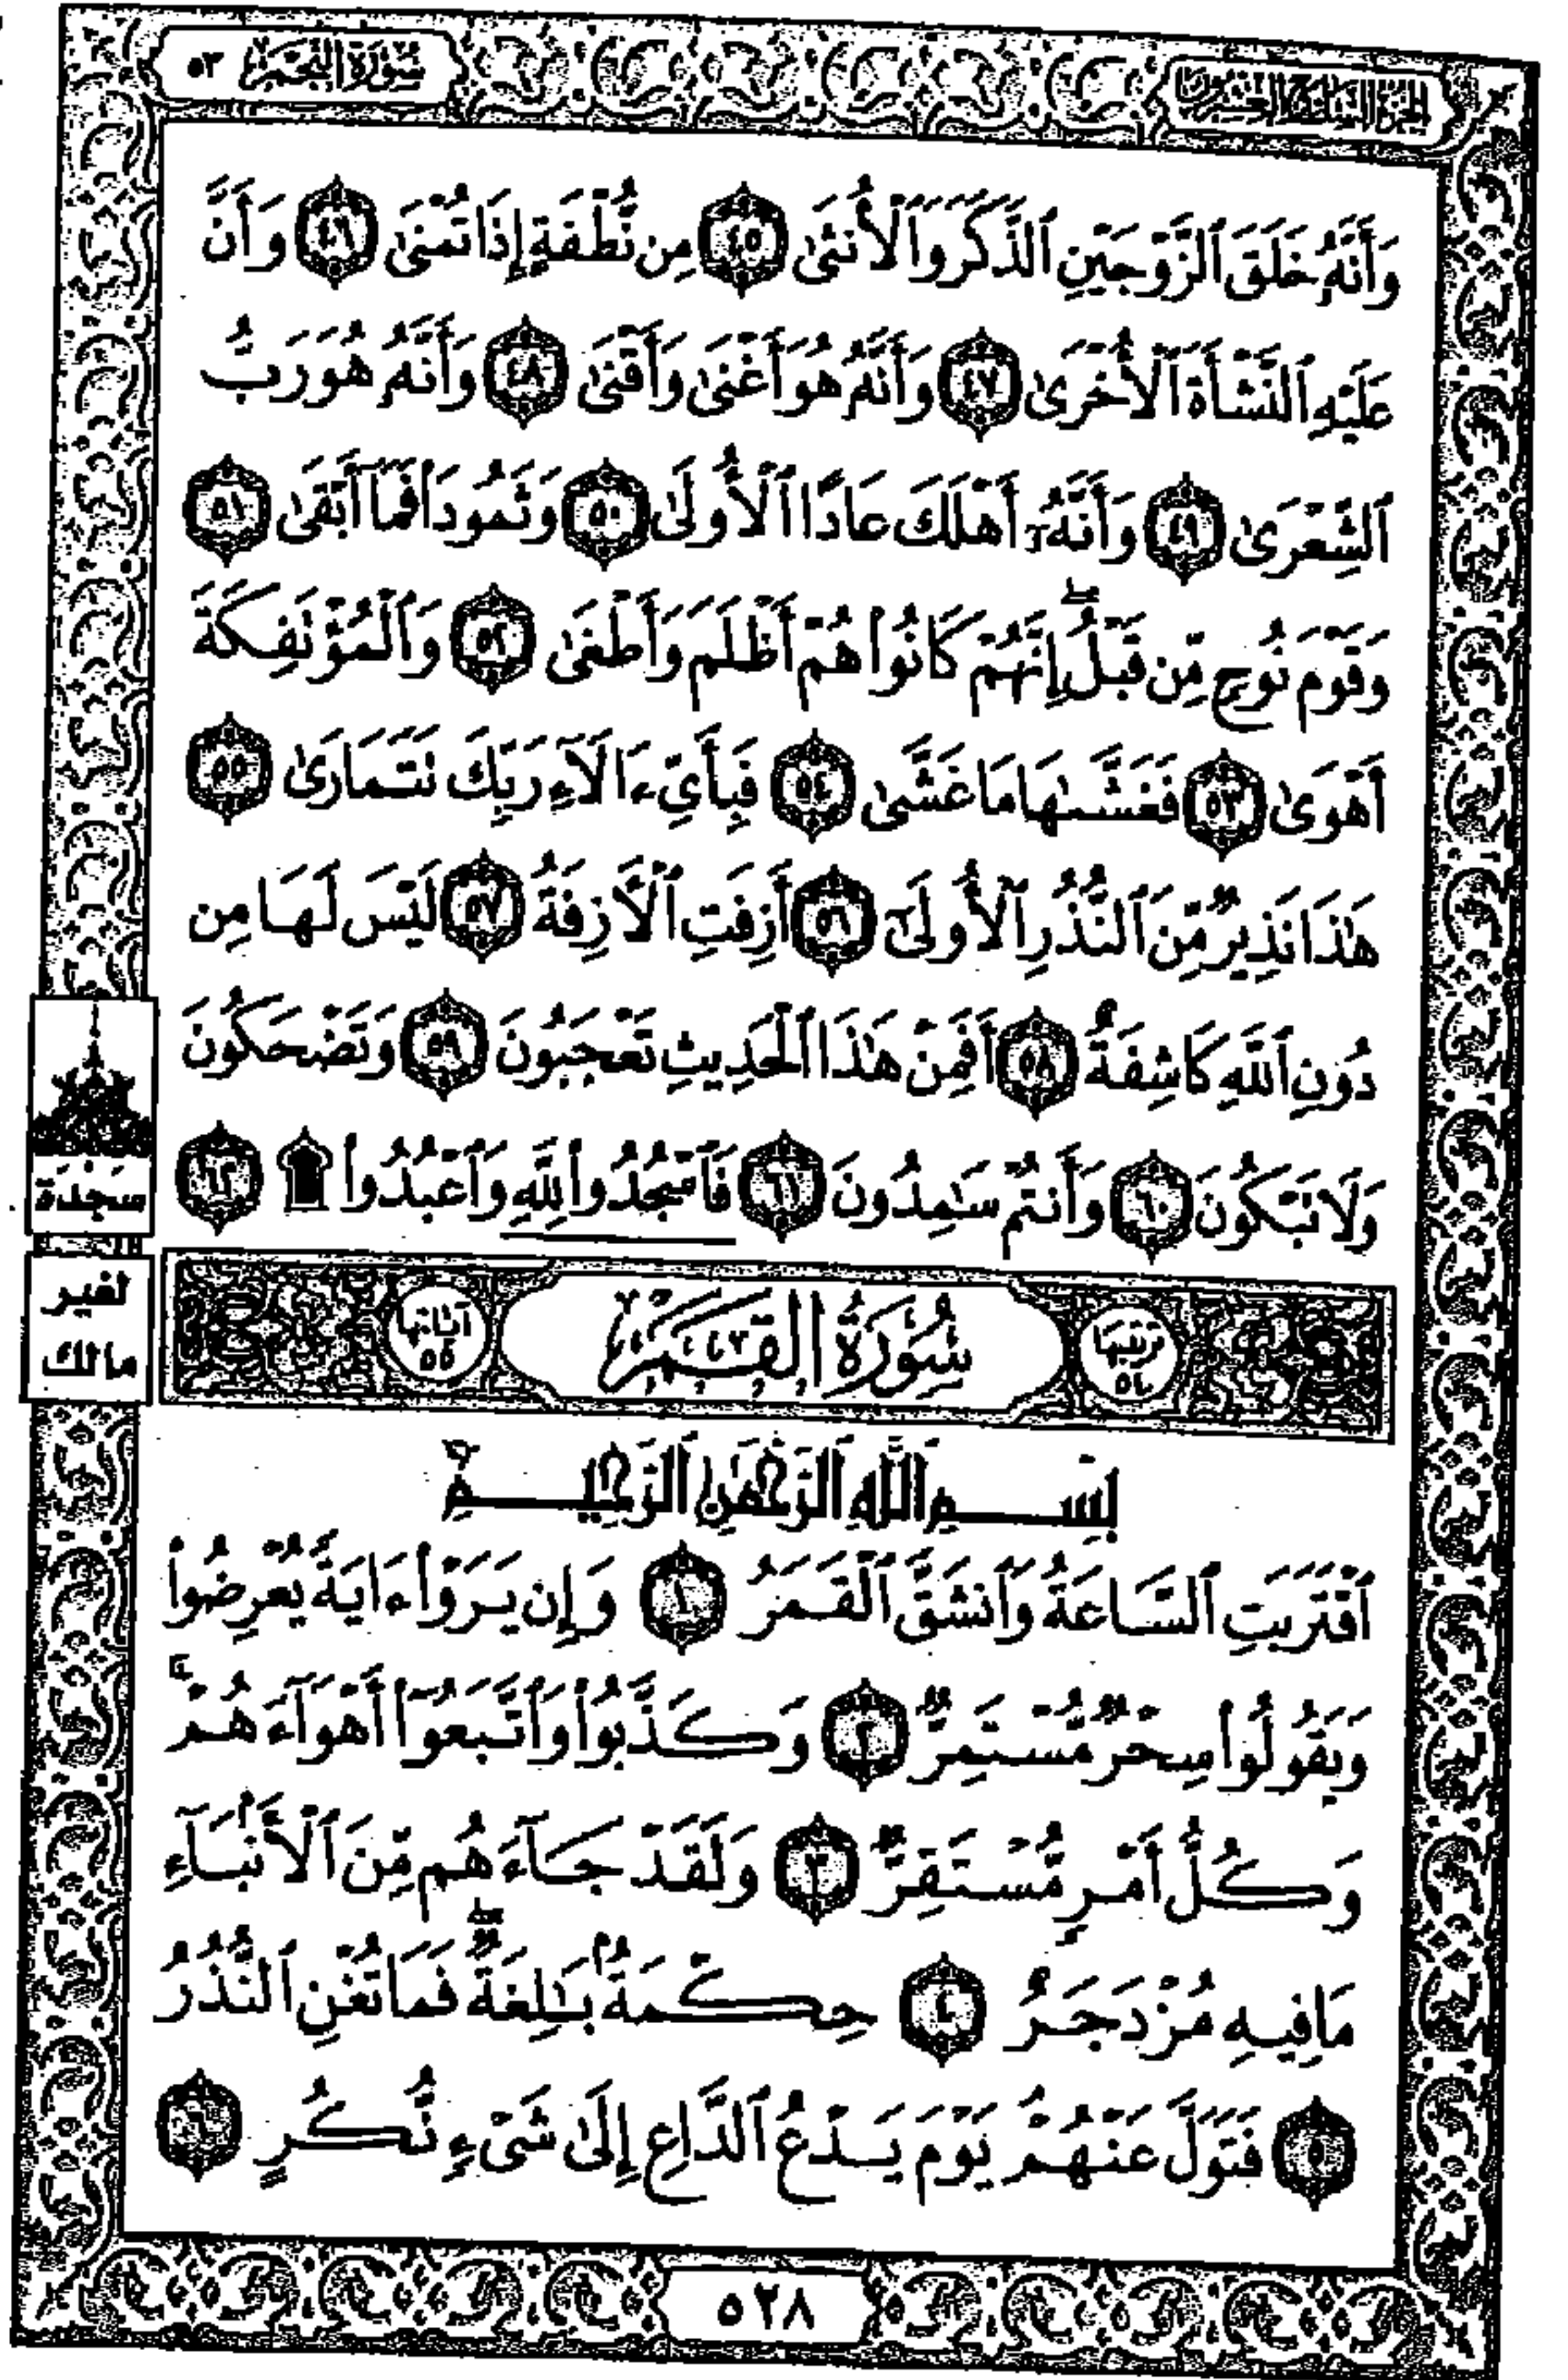 الجزء السابع والعشرون
سورة النجم ٥٣
وَأَنَّهُۥ خَلَقَ ٱلزَّوْجَيْنِ ٱلذَّكَرَ وَٱلْأُنثَىٰ ٤٥ مِن نُّطْفَةٍ إِذَا تُمْنَىٰ ٤٦ وَأَنَّ
عَلَيْهِ ٱلنَّشْأَةَ ٱلْأُخْرَىٰ ٤٧ وَأَنَّهُۥ هُوَ أَغْنَىٰ وَأَقْنَىٰ ٤٨ وَأَنَّهُۥ هُوَ رَبُّ
ٱلشِّعْرَىٰ ٤٩ وَأَنَّهُۥٓ أَهْلَكَ عَادًا ٱلْأُولَىٰ ٥٠ وَثَمُودَا۟ فَمَآ أَبْقَىٰ ٥١
وَقَوْمَ نُوحٍ مِّن قَبْلُ ۖ إِنَّهُمْ كَانُوا۟ هُمْ أَظْلَمَ وَأَطْغَىٰ ٥٢ وَٱلْمُؤْتَفِكَةَ
أَهْوَىٰ ٥٣ فَغَشَّىٰهَا مَا غَشَّىٰ ٥٤ فَبِأَىِّ ءَالَآءِ رَبِّكَ تَتَمَارَىٰ ٥٥
هَٰذَا نَذِيرٌ مِّنَ ٱلنُّذُرِ ٱلْأُولَىٰٓ ٥٦ أَزِفَتِ ٱلْـَٔازِفَةُ ٥٧ لَيْسَ لَهَا مِن
دُونِ ٱللَّهِ كَاشِفَةٌ ٥٨ أَفَمِنْ هَٰذَا ٱلْحَدِيثِ تَعْجَبُونَ ٥٩ وَتَضْحَكُونَ
وَلَا تَبْكُونَ ٦٠ وَأَنتُمْ سَٰمِدُونَ ٦١ فَٱسْجُدُوا۟ لِلَّهِ وَٱعْبُدُوا۟ ۩ ٦٢
سجدة
لغير
مالك
ترتيبها ٥٤ سُورَةُ القَمَر آياتها ٥٥
بِسْمِ ٱللَّهِ ٱلرَّحْمَٰنِ ٱلرَّحِيمِ
ٱقْتَرَبَتِ ٱلسَّاعَةُ وَٱنشَقَّ ٱلْقَمَرُ ١ وَإِن يَرَوْا۟ ءَايَةً يُعْرِضُوا۟
وَيَقُولُوا۟ سِحْرٌ مُّسْتَمِرٌّ ٢ وَكَذَّبُوا۟ وَٱتَّبَعُوٓا۟ أَهْوَآءَهُمْ ۚ
وَكُلُّ أَمْرٍ مُّسْتَقِرٌّ ٣ وَلَقَدْ جَآءَهُم مِّنَ ٱلْأَنۢبَآءِ
مَا فِيهِ مُزْدَجَرٌ ٤ حِكْمَةٌۢ بَٰلِغَةٌ ۖ فَمَا تُغْنِ ٱلنُّذُرُ
٥ فَتَوَلَّ عَنْهُمْ ۘ يَوْمَ يَدْعُ ٱلدَّاعِ إِلَىٰ شَىْءٍ نُّكُرٍ ٦
٥٢٨